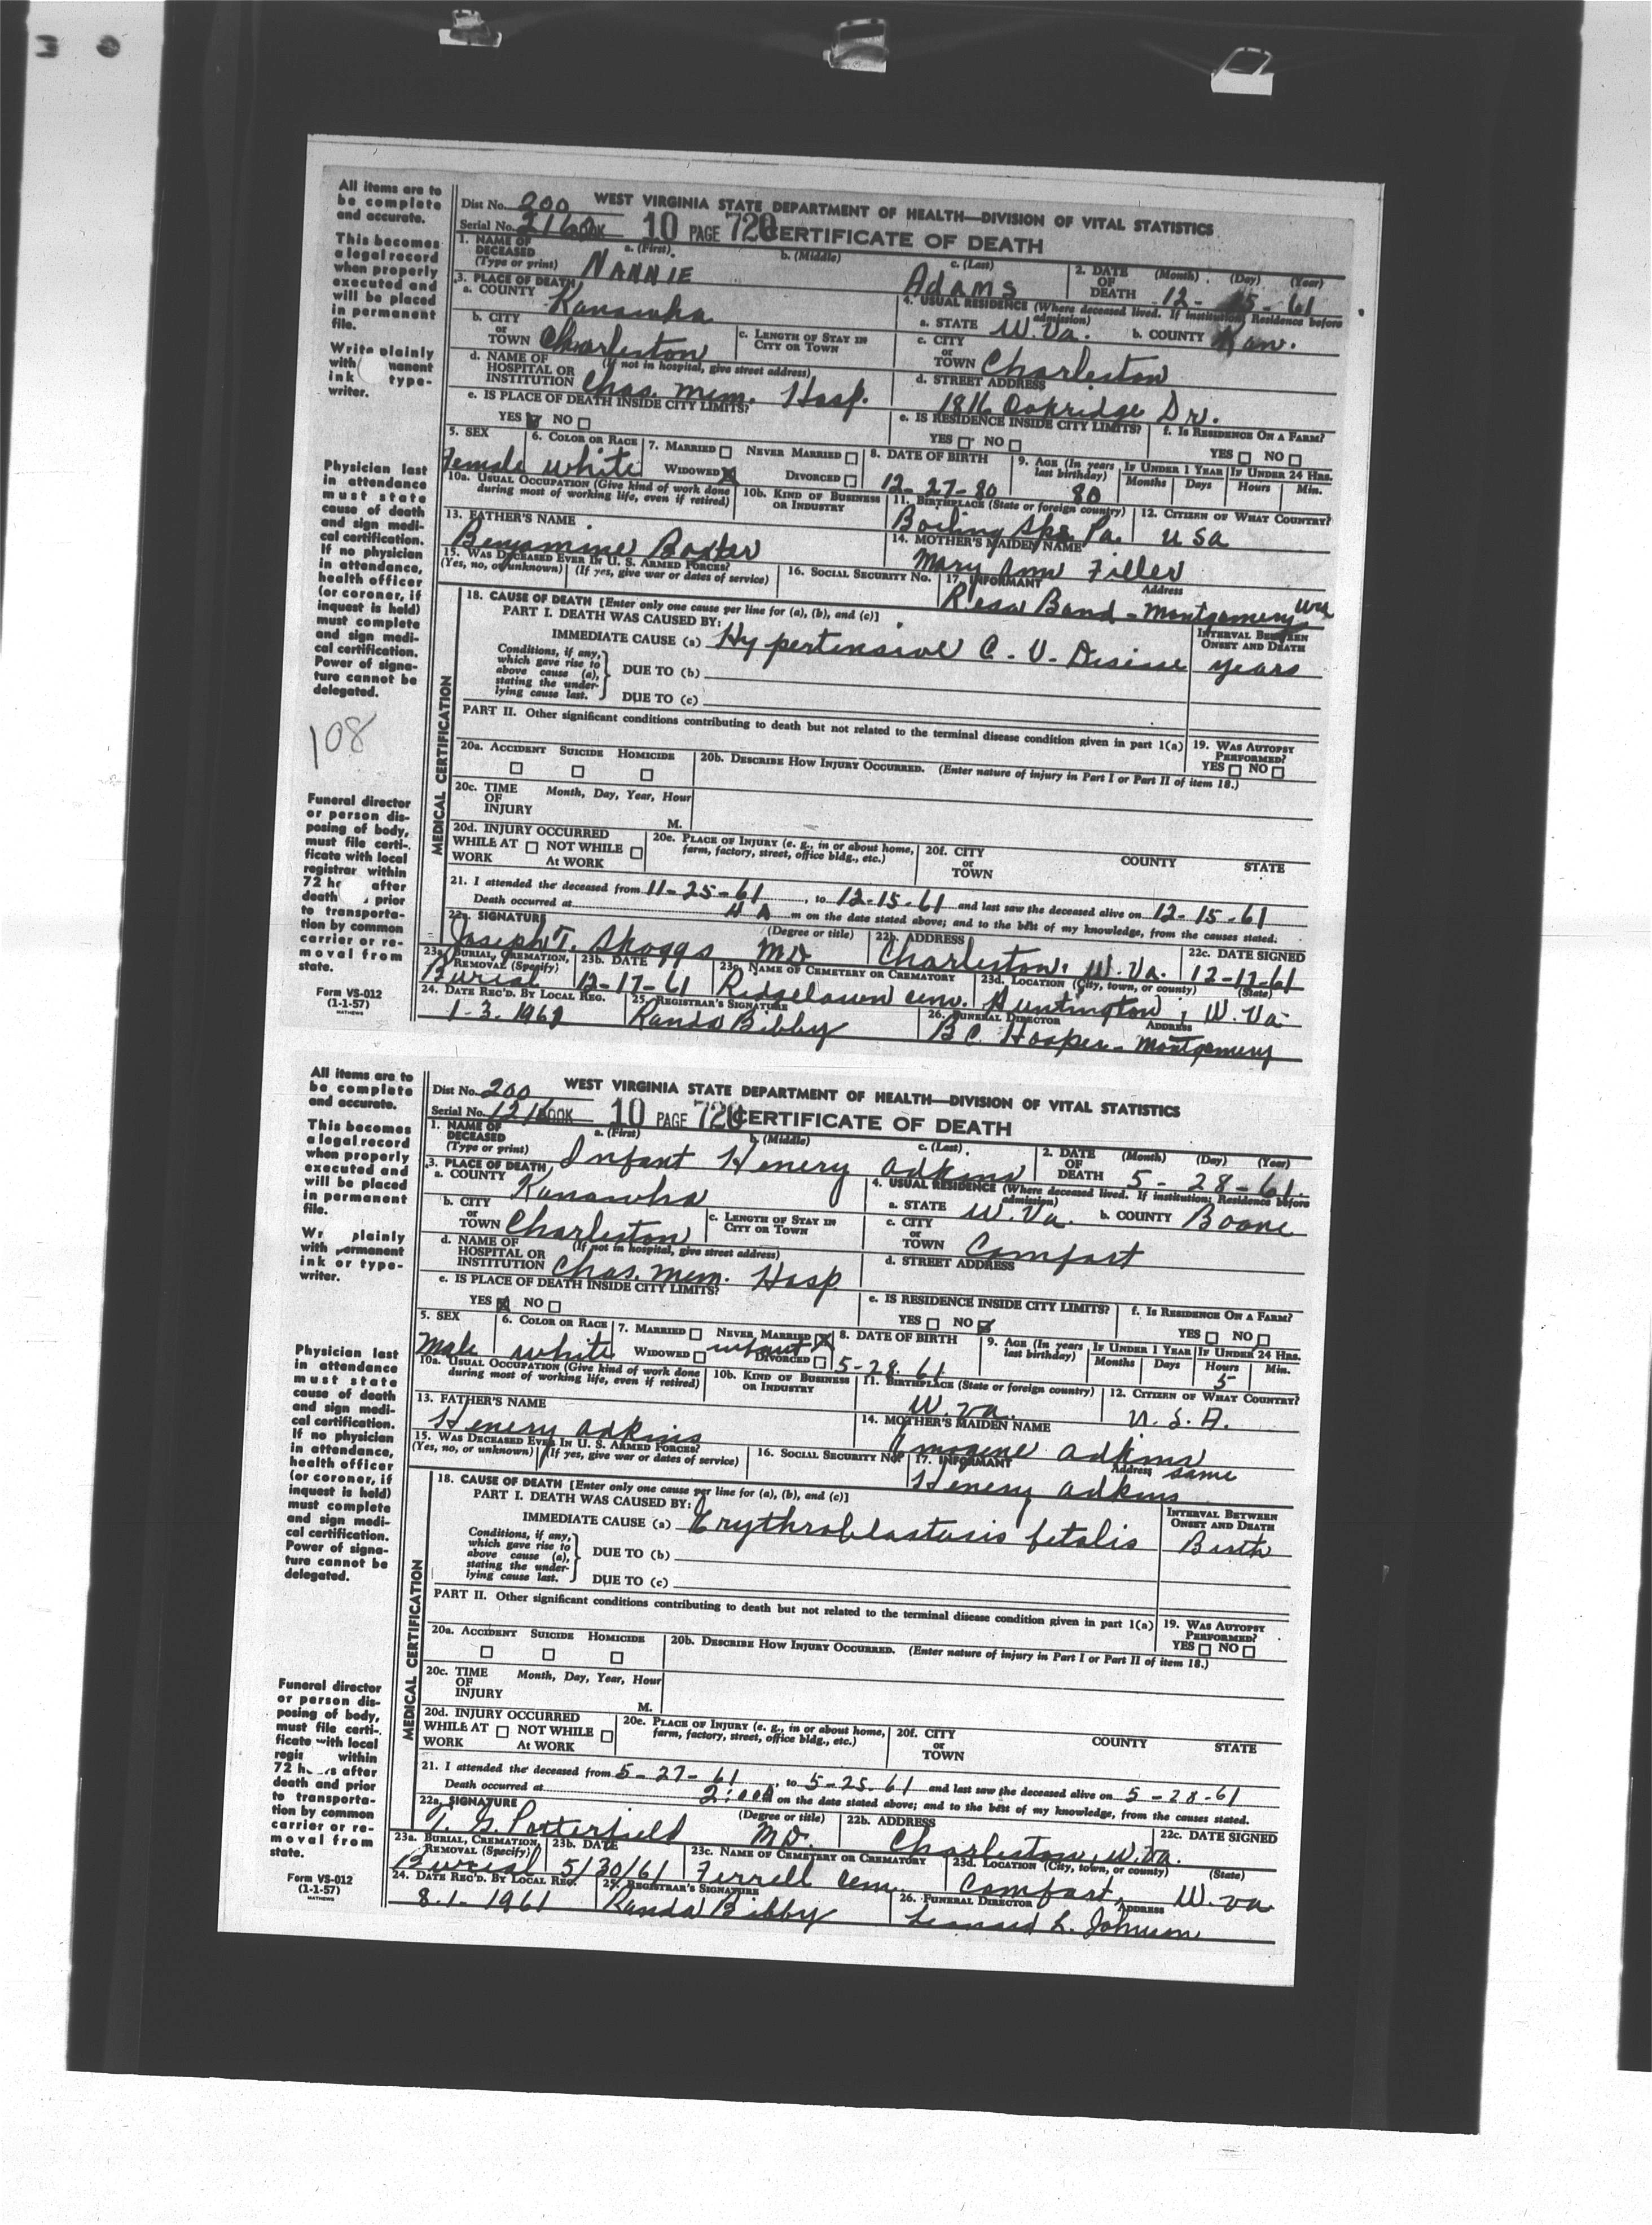 All items are to be complete and accurate.
This becomes a legal record when properly executed and will be placed in permanent file.
Write plainly with manent ink type-writer.
Physician last in attendance must state cause of death and sign medi-cal certification. If no physician in attendance, health officer (or coroner, if inquest is held) must complete and sign medi-cal certification. Power of signa-ture cannot be delegated.
108
Funeral director or person dis-posing of body, must file certi-ficate with local registrar within 72 h after death , prior to transporta-tion by common carrier or re-moval from state.
Form VS-012
(1-1-57)
MATHEWS
WEST VIRGINIA STATE DEPARTMENT OF HEALTH—DIVISION OF VITAL STATISTICS
Dist No. 200
Serial No. 10 PAGE 720 CERTIFICATE OF DEATH
1. NAME OF DECEASED (Type or print) a. (First) NANNIE b. (Middle) c. (Last) Adams
2. DATE OF DEATH (Month) (Day) (Year) 12-15-61
3. PLACE OF DEATH a. COUNTY Kanawha
4. USUAL RESIDENCE (Where deceased lived. If institution: Residence before admission)
a. STATE W. Va. b. COUNTY Kan.
b. CITY or TOWN Charleston c. LENGTH OF STAY IN CITY OR TOWN
c. CITY or TOWN Charleston
d. NAME OF HOSPITAL OR INSTITUTION (If not in hospital, give street address) Chas. Mem. Hosp.
d. STREET ADDRESS Oakridge Dr.
e. IS PLACE OF DEATH INSIDE CITY LIMITS? YES NO
e. IS RESIDENCE INSIDE CITY LIMITS? YES NO
f. IS RESIDENCE ON A FARM? YES NO
5. SEX Female 6. COLOR OR RACE white 7. MARRIED NEVER MARRIED WIDOWED X DIVORCED
8. DATE OF BIRTH 12-27-80 9. AGE (In years last birthday) 80 IF UNDER 1 YEAR Months Days IF UNDER 24 HRS. Hours Min.
10a. USUAL OCCUPATION (Give kind of work done during most of working life, even if retired) 10b. KIND OF BUSINESS OR INDUSTRY
11. BIRTHPLACE (State or foreign country) Boiling Spgs. Pa. 12. CITIZEN OF WHAT COUNTRY? USA
13. FATHER'S NAME Benjamine Baxter
14. MOTHER'S MAIDEN NAME Mary Ann Filler
15. WAS DECEASED EVER IN U. S. ARMED FORCES? (Yes, no, or unknown) (If yes, give war or dates of service)
16. SOCIAL SECURITY No. 17. INFORMANT Address Band - Montgomery
MEDICAL CERTIFICATION
18. CAUSE OF DEATH [Enter only one cause per line for (a), (b), and (c)]
PART I. DEATH WAS CAUSED BY:
INTERVAL BETWEEN ONSET AND DEATH
IMMEDIATE CAUSE (a) Hypertensive C. V. Disease years
Conditions, if any, which gave rise to above cause (a), stating the under-lying cause last.
DUE TO (b)
DUE TO (c)
PART II. Other significant conditions contributing to death but not related to the terminal disease condition given in part 1(a)
19. WAS AUTOPSY PERFORMED? YES NO
20a. ACCIDENT SUICIDE HOMICIDE
20b. DESCRIBE HOW INJURY OCCURRED. (Enter nature of injury in Part I or Part II of item 18.)
20c. TIME OF INJURY Month, Day, Year, Hour M.
20d. INJURY OCCURRED WHILE AT WORK NOT WHILE AT WORK
20e. PLACE OF INJURY (e. g., in or about home, farm, factory, street, office bldg., etc.)
20f. CITY or TOWN COUNTY STATE
21. I attended the deceased from 11-25-61, to 12-15-61 and last saw the deceased alive on 12-15-61
Death occurred at m on the date stated above; and to the best of my knowledge, from the causes stated.
22a. SIGNATURE Joseph T. Skaggs (Degree or title) MD 22b. ADDRESS Charleston, W. Va. 22c. DATE SIGNED 12-17-61
23a. BURIAL, CREMATION, REMOVAL (Specify) Burial 23b. DATE 12-17-61 23c. NAME OF CEMETERY OR CREMATORY Ridgelawn cem. 23d. LOCATION (City, town, or county) (State) Huntington, W. Va.
24. DATE REC'D. BY LOCAL REG. 25. REGISTRAR'S SIGNATURE Randa Bibby 26. FUNERAL DIRECTOR ADDRESS B C Hooper - Montgomery
All items are to be complete and accurate.
This becomes a legal record when properly executed and will be placed in permanent file.
Wr plainly with permanent ink or type-writer.
Physician last in attendance must state cause of death and sign medi-cal certification. If no physician in attendance, health officer (or coroner, if inquest is held) must complete and sign medi-cal certification. Power of signa-ture cannot be delegated.
Funeral director or person dis-posing of body, must file certi-ficate with local regis within 72 h rs after death and prior to transporta-tion by common carrier or re-moval from state.
Form VS-012
(1-1-57)
MATHEWS
WEST VIRGINIA STATE DEPARTMENT OF HEALTH—DIVISION OF VITAL STATISTICS
Dist No. 200
Serial No. 10 PAGE 720 CERTIFICATE OF DEATH
1. NAME OF DECEASED (Type or print) a. (First) Infant b. (Middle) Henery c. (Last) Adkins
2. DATE OF DEATH (Month) (Day) (Year) 5-28-61
3. PLACE OF DEATH a. COUNTY Kanawha
4. USUAL RESIDENCE (Where deceased lived. If institution: Residence before admission)
a. STATE W. Va. b. COUNTY Boone
b. CITY or TOWN Charleston c. LENGTH OF STAY IN CITY OR TOWN
c. CITY or TOWN Comfort
d. NAME OF HOSPITAL OR INSTITUTION (If not in hospital, give street address) Chas. Mem. Hosp
d. STREET ADDRESS
e. IS PLACE OF DEATH INSIDE CITY LIMITS? YES X NO
e. IS RESIDENCE INSIDE CITY LIMITS? YES NO X
f. IS RESIDENCE ON A FARM? YES NO
5. SEX Male 6. COLOR OR RACE white 7. MARRIED NEVER MARRIED X WIDOWED infant DIVORCED
8. DATE OF BIRTH 5-28-61 9. AGE (In years last birthday) IF UNDER 1 YEAR Months Days IF UNDER 24 HRS. Hours 5 Min.
10a. USUAL OCCUPATION (Give kind of work done during most of working life, even if retired) 10b. KIND OF BUSINESS OR INDUSTRY
11. BIRTHPLACE (State or foreign country) W. Va. 12. CITIZEN OF WHAT COUNTRY? U. S. A.
13. FATHER'S NAME Henery Adkins
14. MOTHER'S MAIDEN NAME Imogene Adkins
15. WAS DECEASED EVER IN U. S. ARMED FORCES? (Yes, no, or unknown) (If yes, give war or dates of service)
16. SOCIAL SECURITY No. 17. INFORMANT Henery Adkins Address same
MEDICAL CERTIFICATION
18. CAUSE OF DEATH [Enter only one cause per line for (a), (b), and (c)]
PART I. DEATH WAS CAUSED BY:
INTERVAL BETWEEN ONSET AND DEATH
IMMEDIATE CAUSE (a) Erythroblastosis fetalis Birth
Conditions, if any, which gave rise to above cause (a), stating the under-lying cause last.
DUE TO (b)
DUE TO (c)
PART II. Other significant conditions contributing to death but not related to the terminal disease condition given in part 1(a)
19. WAS AUTOPSY PERFORMED? YES NO
20a. ACCIDENT SUICIDE HOMICIDE
20b. DESCRIBE HOW INJURY OCCURRED. (Enter nature of injury in Part I or Part II of item 18.)
20c. TIME OF INJURY Month, Day, Year, Hour M.
20d. INJURY OCCURRED WHILE AT WORK NOT WHILE AT WORK
20e. PLACE OF INJURY (e. g., in or about home, farm, factory, street, office bldg., etc.)
20f. CITY or TOWN COUNTY STATE
21. I attended the deceased from 5-27-61, to 5-25-61 and last saw the deceased alive on 5-28-61
Death occurred at 2:00 on the date stated above; and to the best of my knowledge, from the causes stated.
22a. SIGNATURE T. G. Potterfield (Degree or title) MD. 22b. ADDRESS Charleston, W. Va. 22c. DATE SIGNED
23a. BURIAL, CREMATION, REMOVAL (Specify) Burial 23b. DATE 5/30/61 23c. NAME OF CEMETERY OR CREMATORY Ferrell cem. 23d. LOCATION (City, town, or county) (State) Comfort, W. Va.
24. DATE REC'D. BY LOCAL REG. 8-1-1961 25. REGISTRAR'S SIGNATURE Randa Bibby 26. FUNERAL DIRECTOR ADDRESS Leonard L. Johnson